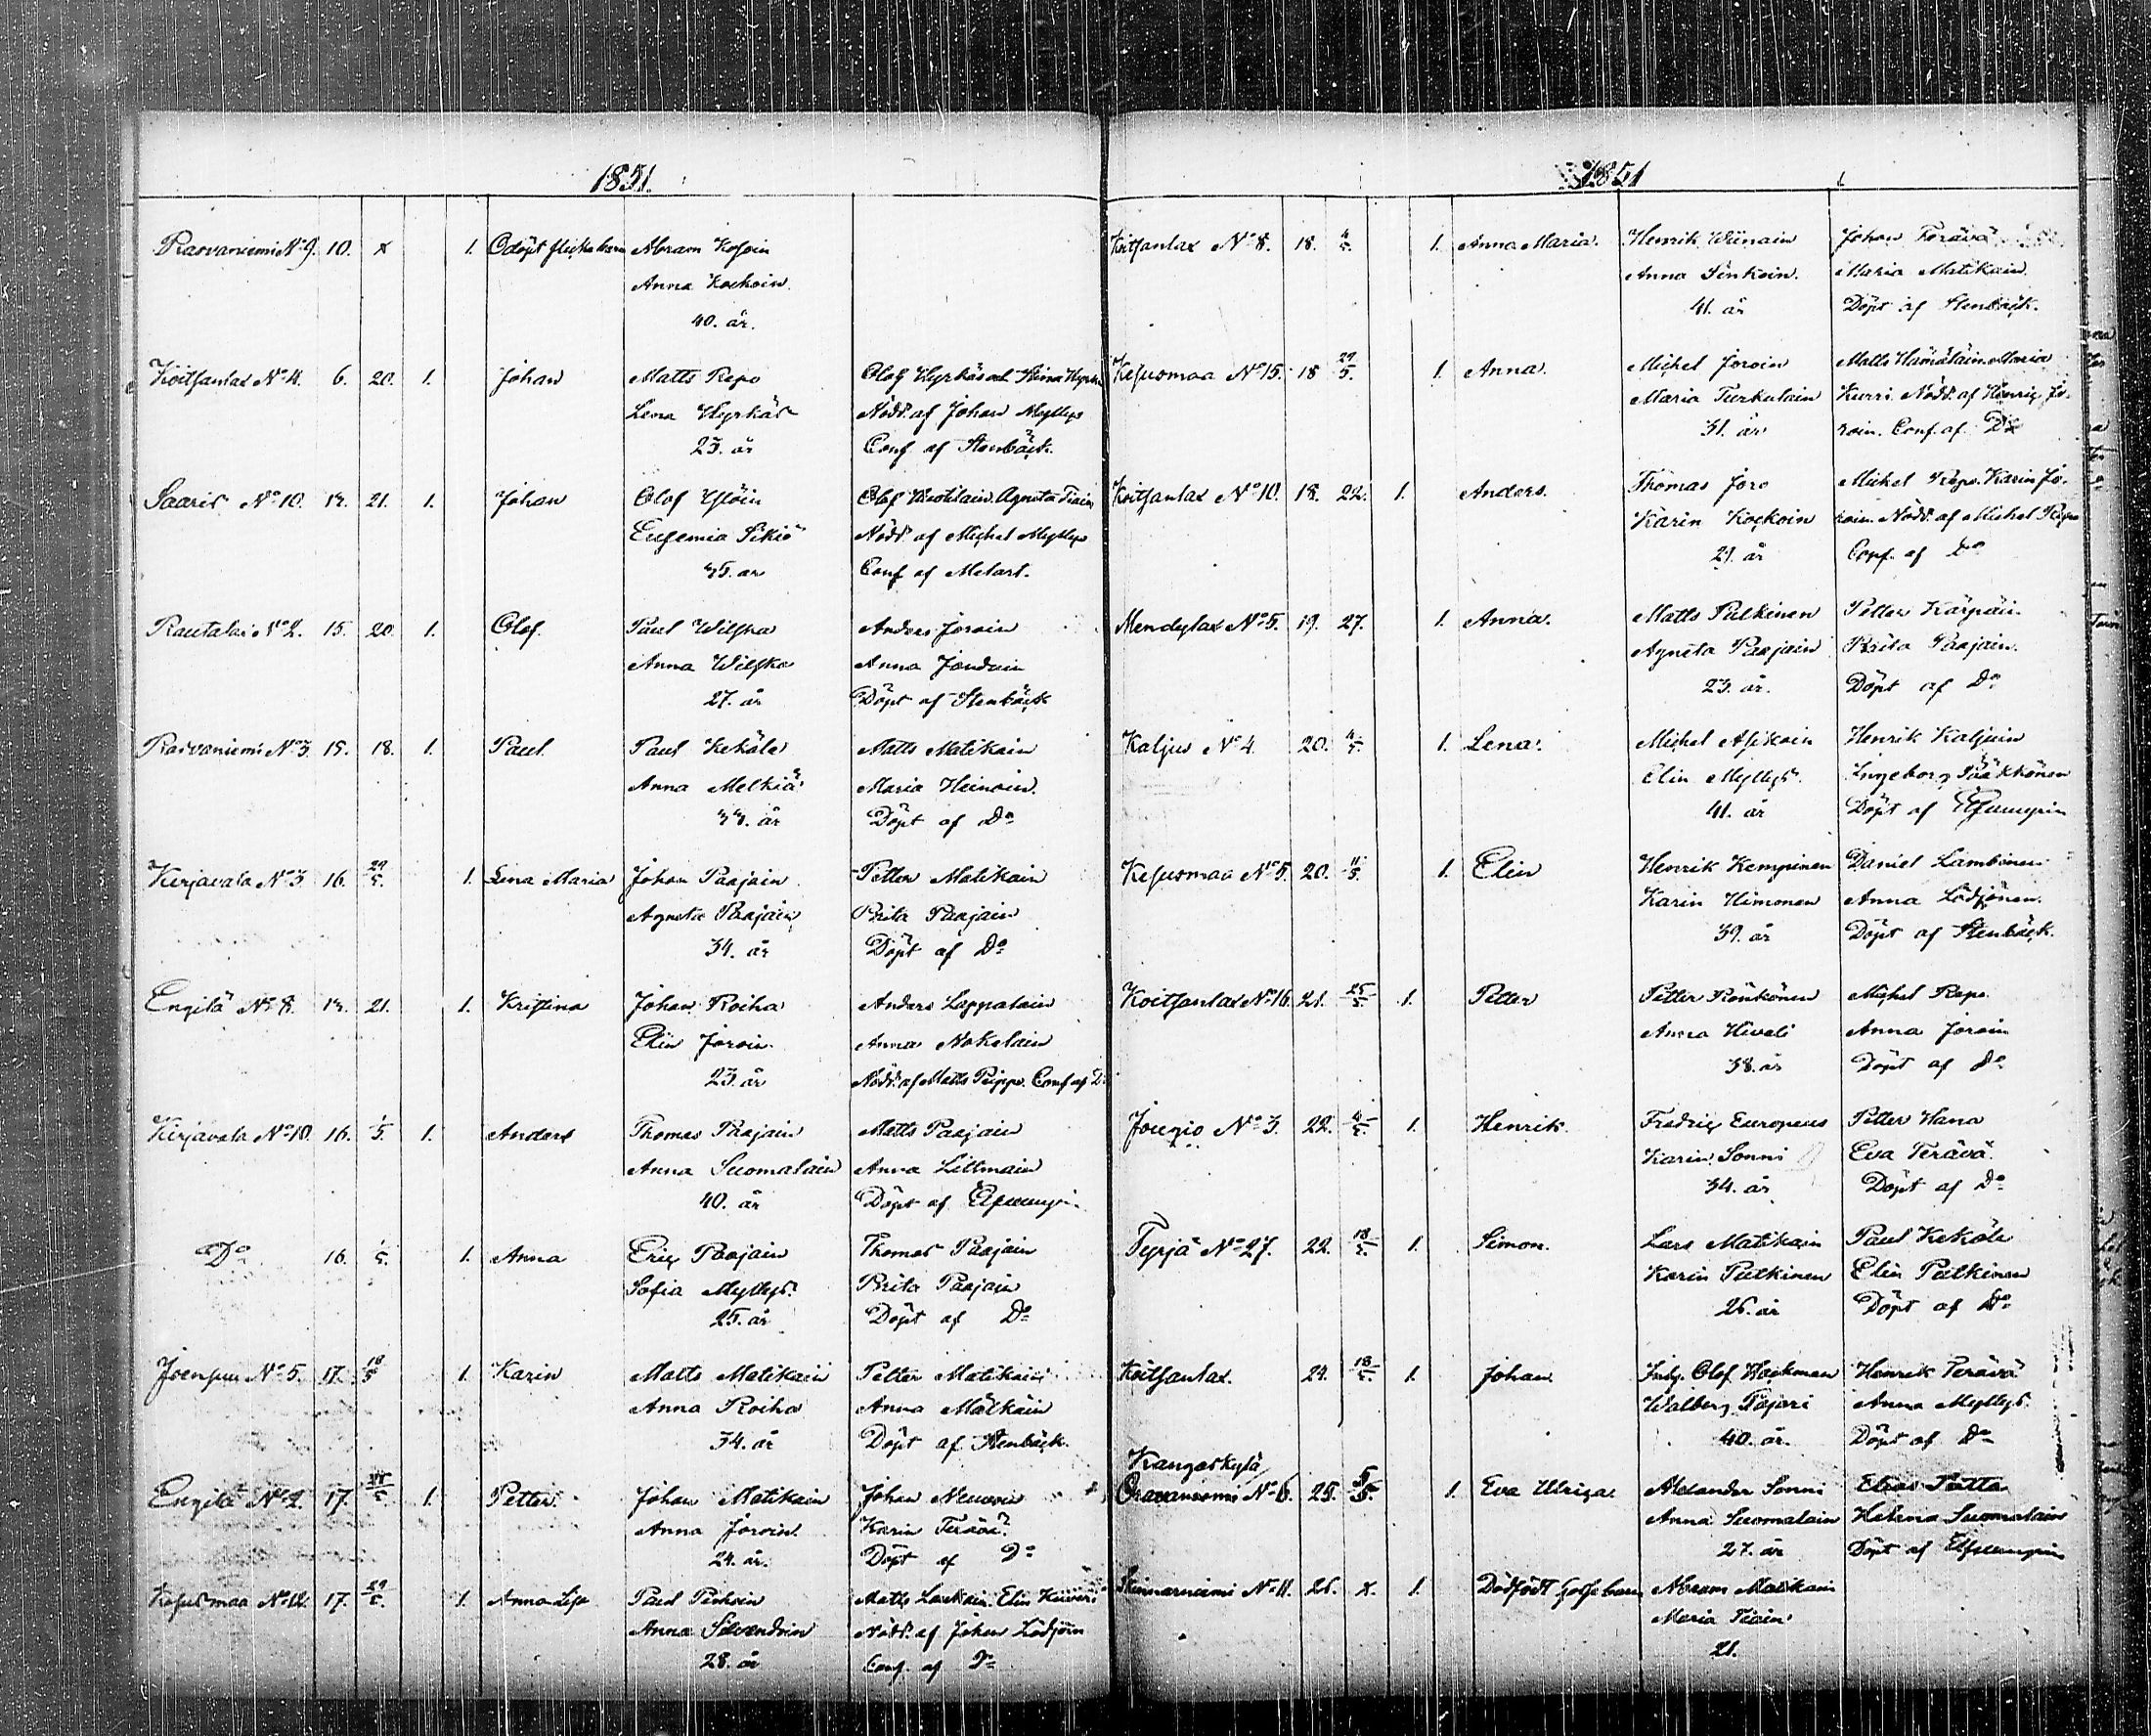 1851.
Rasvaniemi No 9. 10. x 1. Odöpt flickebarn Abram
Anna Kockoin.
40. år.
Koitsanlax No 4. 6. 20. 1. Johan Matts Repo Olof Hyrkäs och Stina
Lena Hyrkäs Nödd. af Johan Myllys
23. år Conf af Stenbäck.
Saaris No 10. 21. 1. Johan Olof Olof Agneta Tiain
Eufemia Sikiö Nödd. af Michel Myllys
Conf af Melart.
Rautalax No 2. 15. 20. 1. Olof. Paul Wilska Anders Joroin
Anna Wilska Anna
27. år Döpt af Stenbäck
Rasvaniemi No 3. 15. 18. 1. Paul. Paul Kekäle Matts Matikain
Anna Melkiä Maria Heinoin.
år Döpt af Do
Kirjavala No 3. 16. 29/5. 1. Lena Maria Johan Paajain Petter Matikain
Agneta Paajain Brita Paajain
34. år Döpt af Do
Engilä No 8. 21. 1. Kristina Johan Roiha Anders Lappalain
Elin Joroin. Anna Nokelain
23. år Nödd. af Matts Peippo. Conf af Do
Kirjavala No 10. 16. 1/5. 1. Anders Thomas Paajain Matts Paajain
Anna Suomalain Anna Littmain
40. år Döpt af
Do 16. 1/5. 1. Anna Eric Paajain Thomas Paajain
Sofia Myllys. Brita Paajain
25. år Döpt af Do
Joenpuu No 5. 17. 18/5 1. Karin Matts Matikain Petter Matikain
Anna Roiha Anna
34. år Döpt af Stenbäck.
Engilä No 2. 17. 1. Petter Johan Matikain Johan
Anna Joroin. Karin Terävä
24. år. Döpt af Do
Kesusmaa No 12. 17. 29/5. 1. Anna Lisa Paul Matts Elin
Anna Silvendoin Nödd. af Johan Lödjöin
28. år Conf. af Do
1851
Koitsanlax No 8. 18. 1. Anna Maria. Henrik Wiinain Johan Terävä
Anna Sinkoin. Maria Matikain.
41. år Döpt af Stenbäck.
Kesusmaa No 15. 18 29/5. 1. Anna. Michel Joroin Matts Hämäläin Maria
Maria Turkulain Kurri. Nödd. af Henric Jo-
31. år roin. Conf. af Do
Koitsanlax No 10. 18. 22. 1. Anders. Thomas Joro Michel Repo. Karin Jo-
Karin Kockoin roin. Nödd. af Michel Repo
21. år Conf. af Do
Mendylax No 5. 19. 27. 1. Anna. Matts Pulkinen Petter Kärpäin.
Agneta Paajain Brita Paajain.
23. år. Döpt af Do
Kaljus No 4. 20. 1. Lena. Michel Asikain Henrik Kaljuin
Elin Myllys. Ingeborg Pääkkönen
41. år Döpt af
Kesusmaa No 5. 20. 11/5. 1. Elin Henrik Kempinen Daniel Lambinen
Karin Himonen Anna Lödjönen.
39. år Döpt af Stenbäck.
Koitsanlax No 16. 21. 25/5. 1. Petter Petter Rönkönen Michel Repo.
Anna Anna Joroin
38. år Döpt af Do
Jougio No 3. 22. 1. Henrik. Fredric Europeus Petter Hana
Karin Sonni Eva Terävä
34. år Döpt af Do
Tyrjä No 27. 22. 18/5. 1. Simon. Lars Matikain Paul Kekäle
Karin Pulkinen Elin Pulkinen
26. år Döpt af Do
Koitsanlax. 24. 18/5. 1. Johan. Inhy. Olof Hackman Henrik Terävä
Walborg Pajari Anna Myllys.
40. år. Döpt af Do
Kangaskylä
Oravaniemi No 6. 25. 1. Eva Ulrica. Alexander Sonni Elias
Anna Suomalain Helena Suomalain
27. år Döpt af
No 11. 26. x. 1. Dödfödt gossebarn Abram Matikain
Maria Tiain
21.